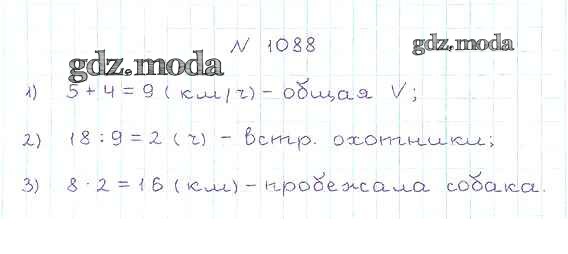 № 1088
gdz.moda
gdz.moda
1) 5 + 4 = 9 (км/ч) – общая V;
2) 18 : 9 = 2 (ч) – встр. охотники;
3) 8 · 2 = 16 (км) – пробежала собака.